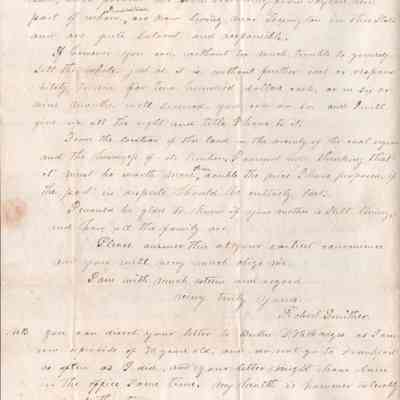 part of whom, are now living near Lexington in this State
and are quite solvent and responsible.
If however you can, without too much trouble to yourself
sell the whole just as it is without further cost or respon
sibility to me for two hundred dollars cash, or in six or
nine months well secured you can do so and I will
give up all the right and title I have to it.
From the location of this land in the vicinity of the coal region
and the heaviness of its timber, I cannot but thinking that
it must be worth more than double the price I have proposed if
the part in dispute should be entirely lost.
I would be glad to know if your mother is still living,
and how all the family are.
Please answer this at your earliest convenience
and you will very much oblige me.
I am with much esteem and regard
very truly yours
Robert Smither.
NB you can direct your letter to as I am
now upwards of 70 years old, and do not go to Frankfort
as often as I did, and your letter might have been
in the office some time. My health is however tolerably